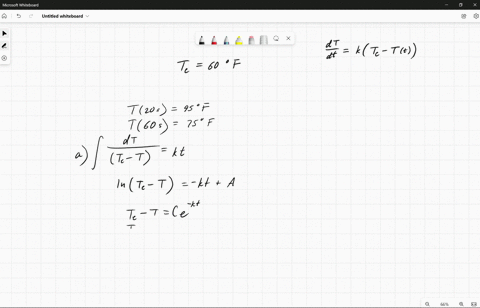 Microsoft Whiteboard
Untitled whiteboard
dT/dt = k(Tc - T(t))
Tc = 60 °F
T(20s) = 95°F
T(60s) = 75°F
a) ∫ dT/(Tc - T) = kt
ln(Tc - T) = -kt + A
Tc - T = Ce^-kt
T
66%